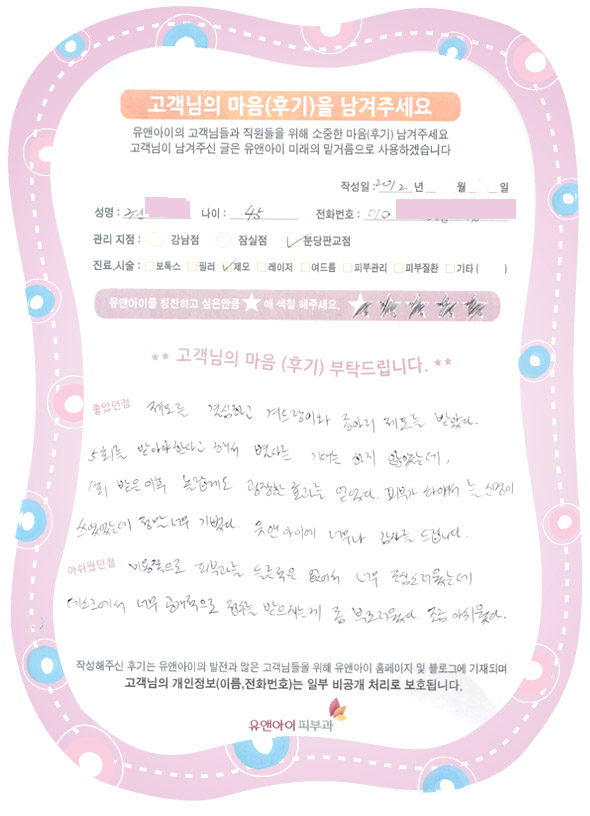 고객님의 마음(후기)을 남겨주세요
유앤아이의 고객님들과 직원들을 위해 소중한 마음(후기) 남겨주세요
고객님이 남겨주신 글은 유앤아이 미래의 밑거름으로 사용하겠습니다
작성일 : 2012 년 월 일
성명 : 나이 : 45 전화번호 : 010
관리 지점 : 강남점 잠실점 분당판교점
진료,시술 : 보톡스 필러 제모 레이저 여드름 피부관리 피부질환 기타 ( )
유앤아이를 칭찬하고 싶은만큼 ★ 에 색칠 해주세요. ★ ★ ★ ★ ★
** 고객님의 마음 (후기) 부탁드립니다. **
좋았던점 제모를 결심하고 겨드랑이와 종아리 제모를 받았다.
5회를 받아야한다고 해서 별다른 기대는 하지 않았는데,
1회 받은 이후 놀랍게도 굉장한 효과를 얻었다. 피부가 하얘서 늘 신경이
쓰였었는데 정말 너무 기뻤다. 유앤아이에 너무나 감사를 드립니다.
아쉬웠던점 비용적으로 피부과를 들른적은 없어서 너무 조심스러웠는데
데스크에서 너무 공개적으로 접수를 받으시는게 좀 부끄러웠다. 조금 아쉬웠다.
작성해주신 후기는 유앤아이의 발전과 많은 고객님들을 위해 유앤아이 홈페이지 및 블로그에 기재되며
고객님의 개인정보(이름,전화번호)는 일부 비공개 처리로 보호됩니다.
유앤아이피부과